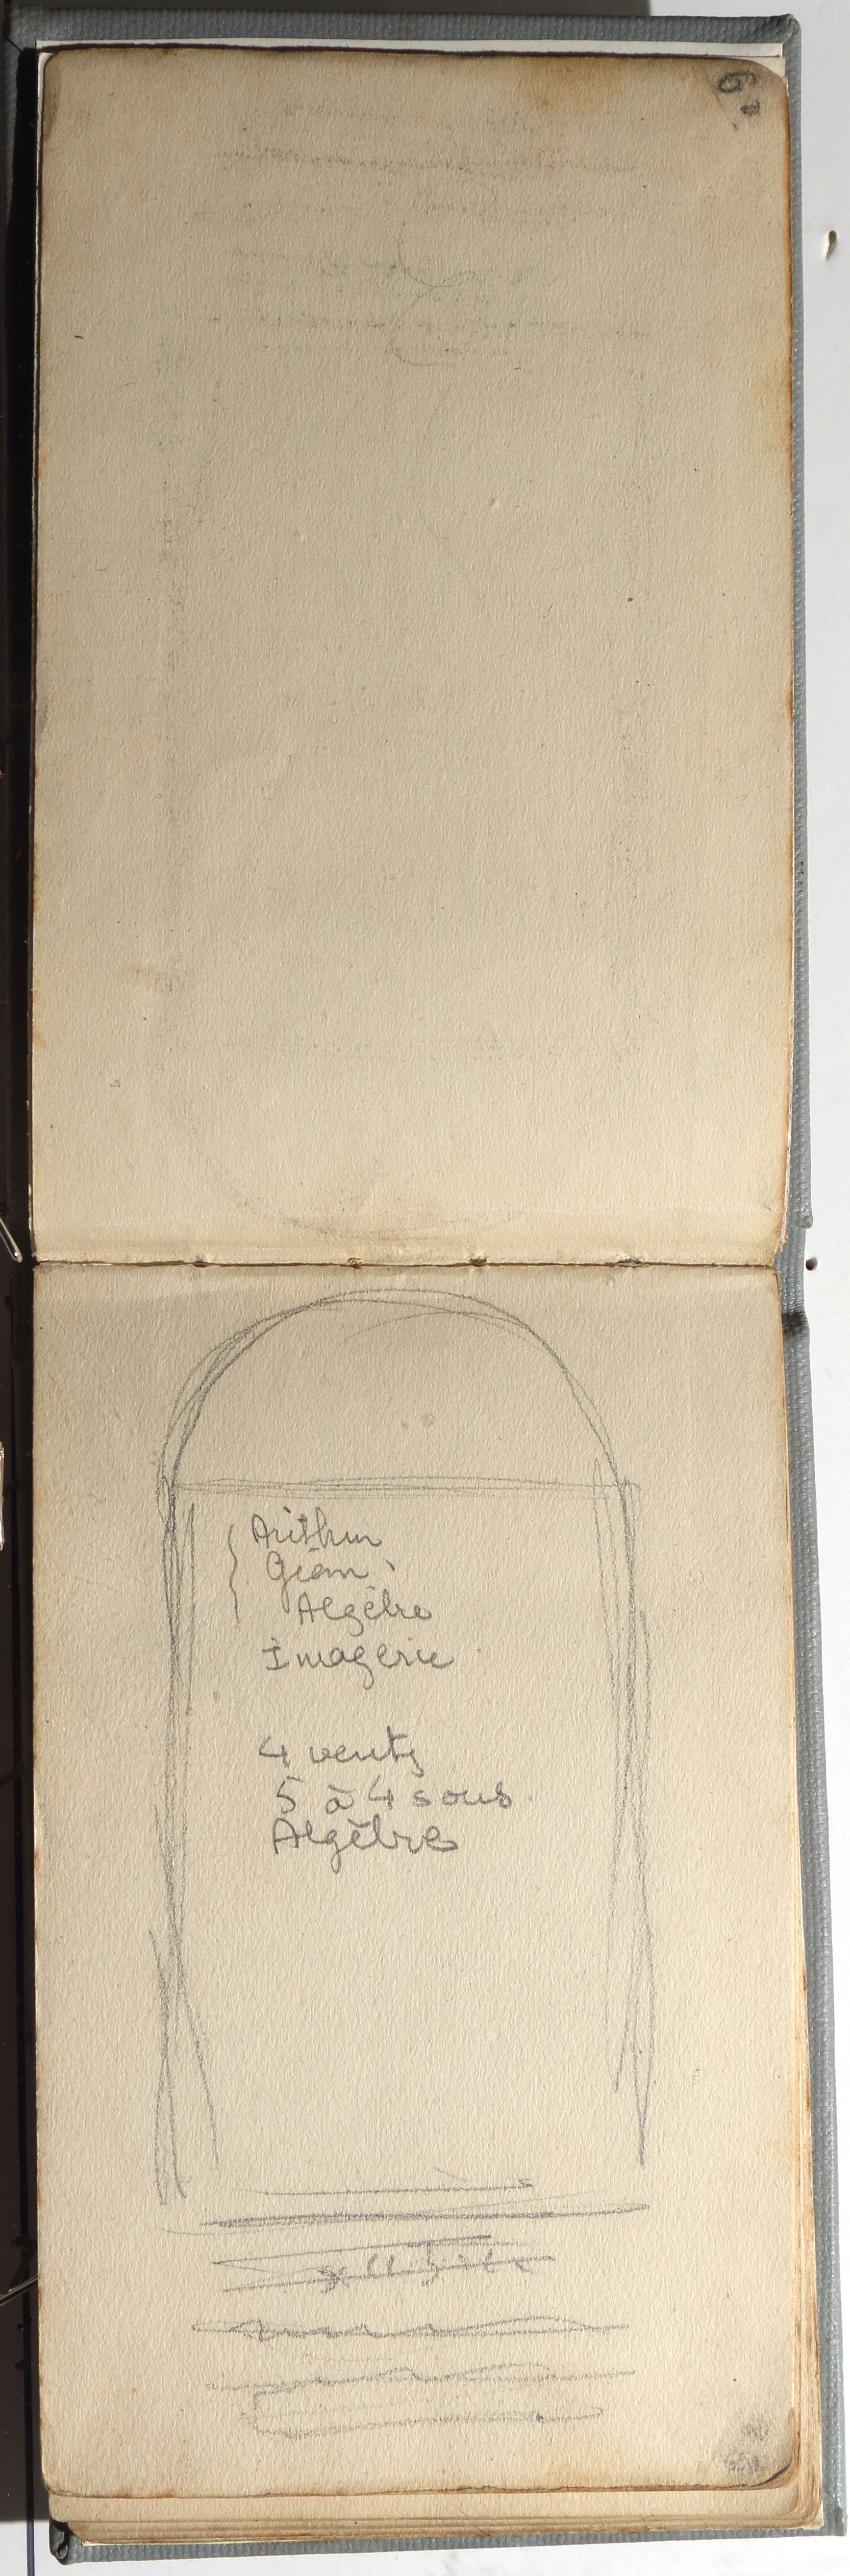 Arithm
Géom
Algèbre
Imagerie
4 vents
5 à 4 sous
Algèbre